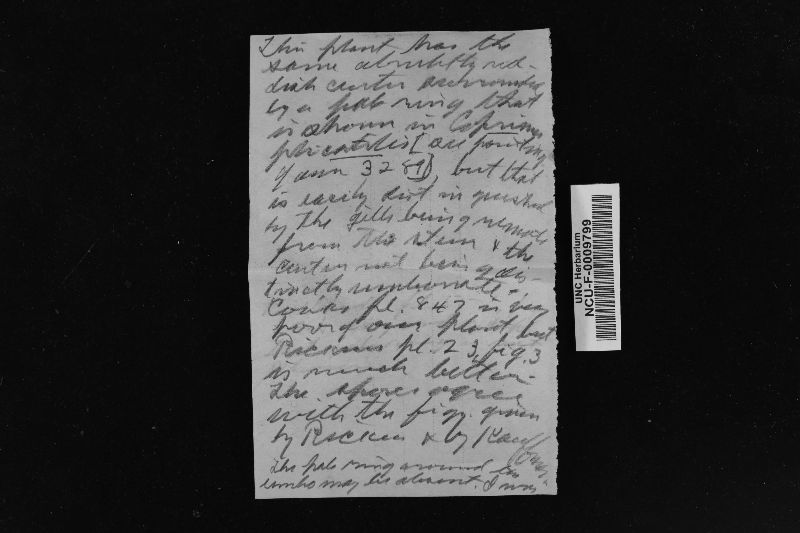 This plant has the
same abruptly red-
dish center surrounded
by a pale ring that
is shown in Coprinus
plicatilis [see painting
of our 3281), but that
is easily distinguished
by the gills being remote
from the stem & the
center not being dis-
tinctly umbonate.
Cooke pl. 847 is very
poor of our plant, but
Ricken's pl. 23, fig. 3
is much better.
The spores agree
with the figs. given
by Ricken & by Kauff
The pale ring around the
umbo may be absent.
UNC Herbarium
NCU-F-0009799